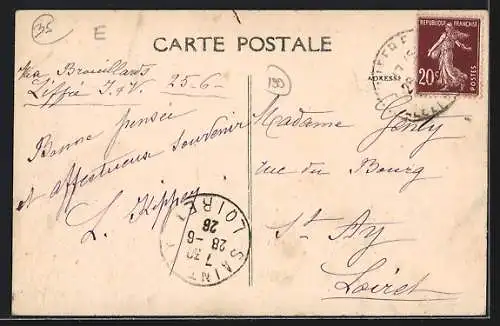 35
E
CARTE POSTALE
Via Brouillards
Liffré I.&V. 25-6-
Bonne pensée
et affectueux souvenir
L.
199
ADRESSE
RÉPUBLIQUE FRANÇAISE
20c
POSTES
Madame
rue du Bourg
St Ay
Loiret
SAINT AY
7 30
28 -6
26
LOIRET